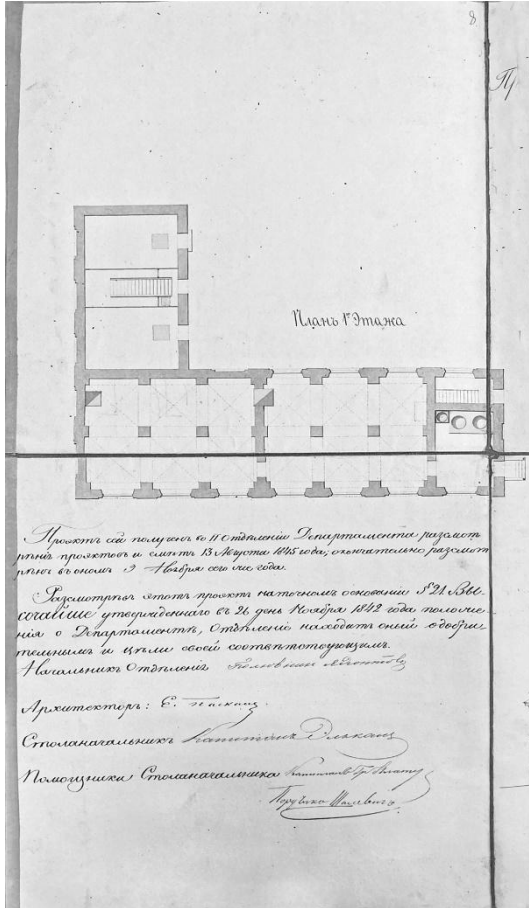 8
Пр
Планъ 1го Этажа
Проэктъ сей полученъ во II Отдѣленіи Департамента разсмот
рѣнія проэктовъ и смѣтъ 13 Августа 1845 года; окончательно разсмот
рѣнъ въ ономъ 9 Ноября сего же года.
Разсмотрѣвъ этотъ проэктъ на точномъ основаніи § 21. Вы
сочайше утвержденнаго въ 26 день Ноября 1842 года положе
нія о Департаментѣ, Отдѣленіе находитъ оный одобри
тельнымъ и цѣли своей соотвѣтствующимъ.
Начальникъ Отдѣленія Полковникъ
Архитекторъ: Е.
Столоначальникъ Капитанъ
Помощники Столоначальника